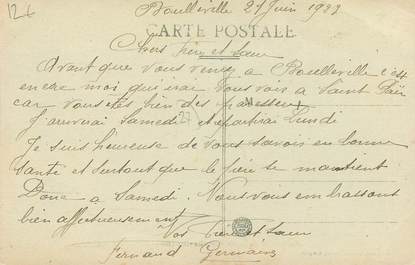 12 €
Boulleville 21 Juin 1922
CARTE POSTALE
Chers frère et sœur
Avant que vous veniez a Boulleville c'est
encore moi qui irai vous voir a Saint
car vous êtes bien des paresseux
J'arriverai Samedi et repartirai Lundi
Je suis heureuse de vous savoir en bonne
santé et surtout que le se maintient
Donc a Samedi. Nous vous embrassons
bien affectueusement
Vos frère et sœur
Fernand Germaine